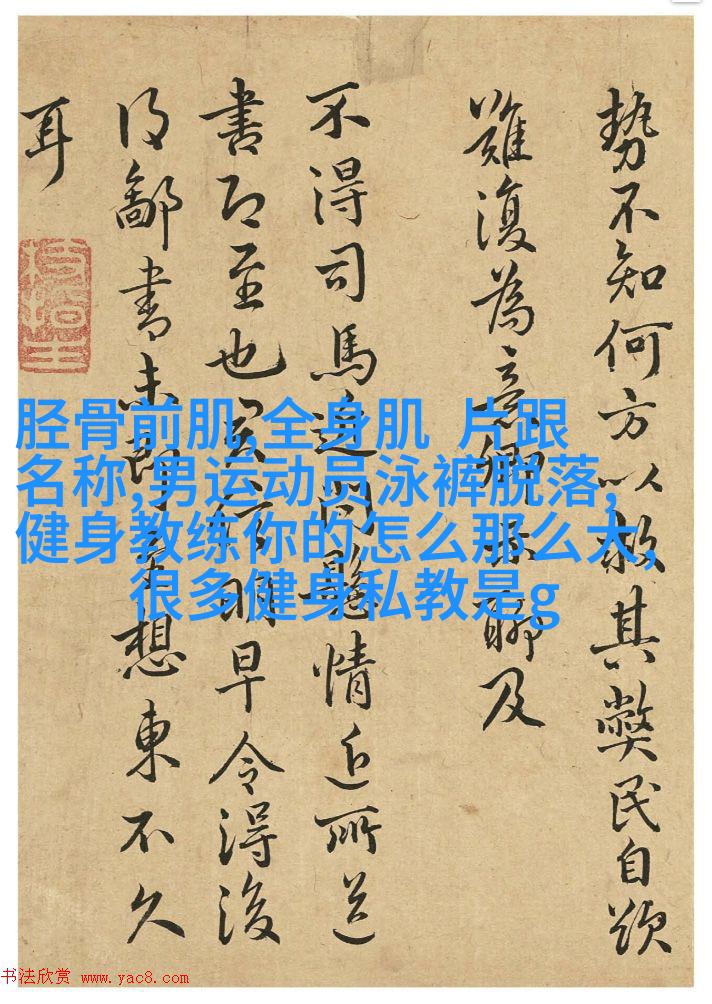 勢不知何方以救其弊民自頃
難復為意卿聊及
不得司馬近問懸情近所送
書即至也明早令得後
得鄙書未即想東不久
耳
胫骨前肌,全身肌 片跟
名称,男运动员泳裤脱落,
健身教练你的怎么那么大,
很多健身私教是g
书法欣赏 www.yac8.com